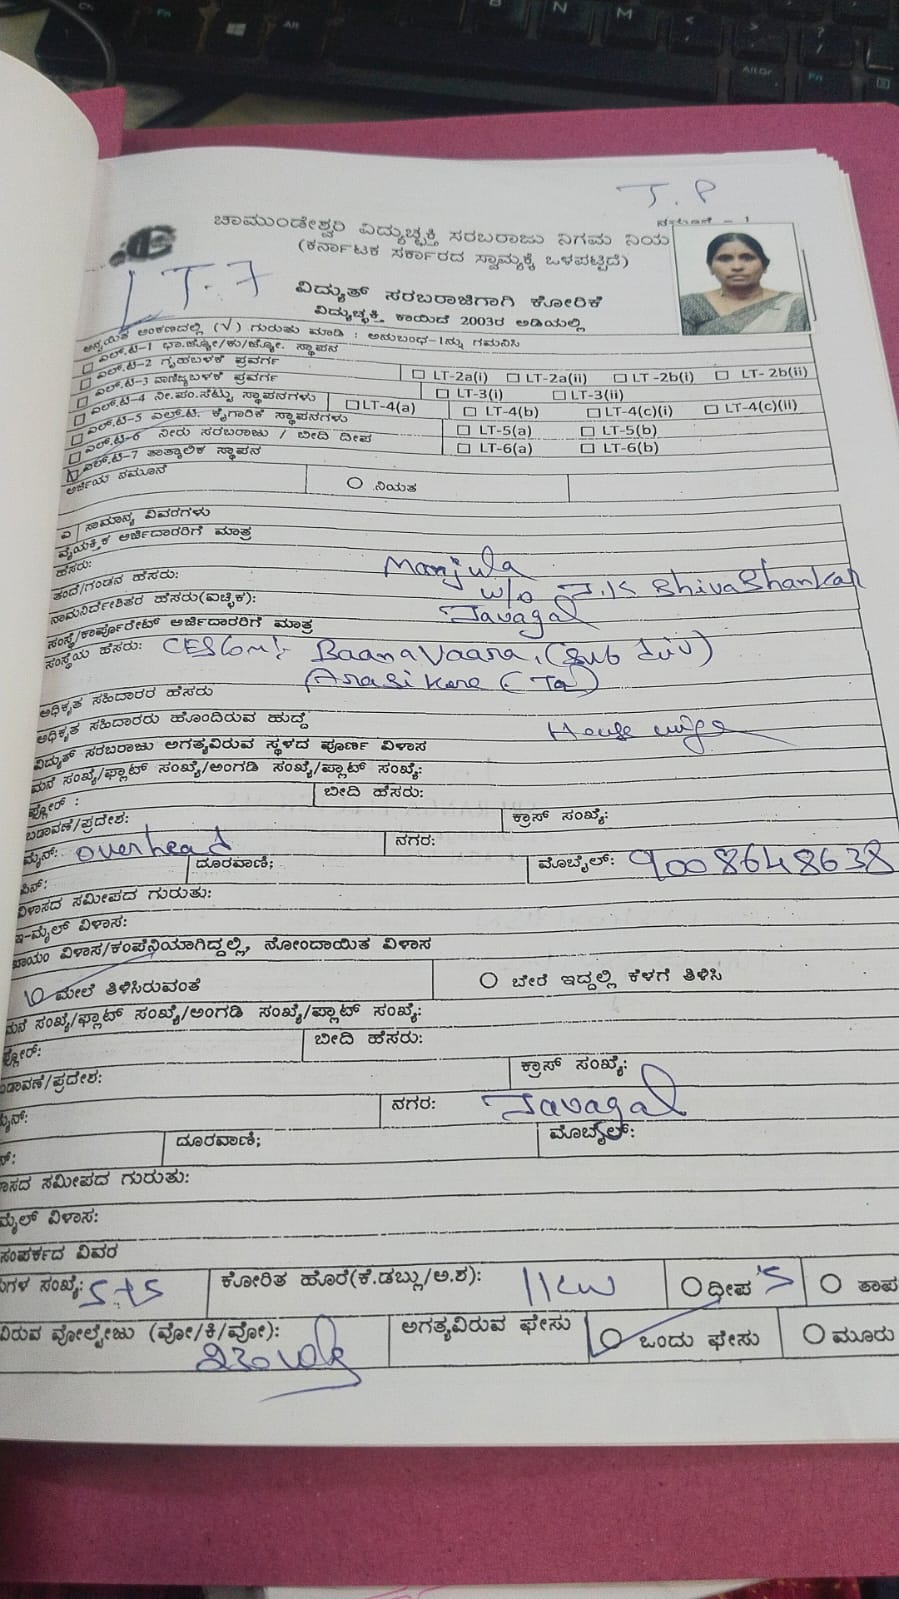 T.P
ನಮೂನೆ - 1
ಚಾಮುಂಡೇಶ್ವರಿ ವಿದ್ಯುಚ್ಛಕ್ತಿ ಸರಬರಾಜು ನಿಗಮ ನಿಯ
(ಕರ್ನಾಟಕ ಸರ್ಕಾರದ ಸ್ವಾಮ್ಯಕ್ಕೆ ಒಳಪಟ್ಟಿದೆ)
LT-7
ವಿದ್ಯುತ್ ಸರಬರಾಜಿಗಾಗಿ ಕೋರಿಕೆ
ವಿದ್ಯುಚ್ಛಕ್ತಿ ಕಾಯಿದೆ 2003ರ ಅಡಿಯಲ್ಲಿ
ಅನ್ವಯಿತ ಅಂಕಣದಲ್ಲಿ (√) ಗುರುತು ಮಾಡಿ : ಅನುಬಂಧ-1ನ್ನು ಗಮನಿಸಿ
ಎಲ್.ಟಿ-1 ಭಾ.ಜ್ಯೋ/ಕು/ಜ್ಯೋ. ಸ್ಥಾಪನ
ಎಲ್.ಟಿ-2 ಗೃಹಬಳಕೆ ಪ್ರವರ್ಗ LT-2a(i) LT-2a(ii) LT -2b(i) LT- 2b(ii)
ಎಲ್.ಟಿ-3 ವಾಣಿಜ್ಯಬಳಕೆ ಪ್ರವರ್ಗ LT-3(i) LT-3(ii)
ಎಲ್.ಟಿ-4 ನೀ.ಪಂ.ಸೆಟ್ಟು ಸ್ಥಾಪನಗಳು LT-4(a) LT-4(b) LT-4(c)(i) LT-4(c)(ii)
ಎಲ್.ಟಿ-5 ಎಲ್.ಟಿ. ಕೈಗಾರಿಕೆ ಸ್ಥಾಪನಗಳು LT-5(a) LT-5(b)
ಎಲ್.ಟಿ-6 ನೀರು ಸರಬರಾಜು / ಬೀದಿ ದೀಪ LT-6(a) LT-6(b)
ಎಲ್.ಟಿ-7 ತಾತ್ಕಾಲಿಕ ಸ್ಥಾಪನ
ಅರ್ಜಿಯ ನಮೂನೆ ನಿಯತ
ಎ ಸಾಮಾನ್ಯ ವಿವರಗಳು
ವೈಯಕ್ತಿಕ ಅರ್ಜಿದಾರರಿಗೆ ಮಾತ್ರ
ಹೆಸರು: Manjula
ತಂದೆ/ಗಂಡನ ಹೆಸರು: w/o J.K Shivashankar
ನಾಮನಿರ್ದೇಶಿತರ ಹೆಸರು(ಐಚ್ಛಿಕ): Javagal
ಸಂಸ್ಥೆ/ಕಾರ್ಪೊರೇಟ್ ಅರ್ಜಿದಾರರಿಗೆ ಮಾತ್ರ
ಸಂಸ್ಥೆಯ ಹೆಸರು: Baanavaara, (Sub div)
Arasikere (Ta)
ಅಧಿಕೃತ ಸಹಿದಾರರ ಹೆಸರು
ಅಧಿಕೃತ ಸಹಿದಾರರು ಹೊಂದಿರುವ ಹುದ್ದೆ House wife
ವಿದ್ಯುತ್ ಸರಬರಾಜು ಅಗತ್ಯವಿರುವ ಸ್ಥಳದ ಪೂರ್ಣ ವಿಳಾಸ
ಮನೆ ಸಂಖ್ಯೆ/ಫ್ಲಾಟ್ ಸಂಖ್ಯೆ/ಅಂಗಡಿ ಸಂಖ್ಯೆ/ಪ್ಲಾಟ್ ಸಂಖ್ಯೆ:
ಫ್ಲೋರ್ : ಬೀದಿ ಹೆಸರು:
ಬಡಾವಣೆ/ಪ್ರದೇಶ: ಕ್ರಾಸ್ ಸಂಖ್ಯೆ:
ಮೈನ್: overhead ನಗರ:
ಪಿನ್: ದೂರವಾಣಿ: ಮೊಬೈಲ್: 9008648638
ವಿಳಾಸದ ಸಮೀಪದ ಗುರುತು:
ಇ-ಮೈಲ್ ವಿಳಾಸ:
ಖಾಯಂ ವಿಳಾಸ/ಕಂಪೆನಿಯಾಗಿದ್ದಲ್ಲಿ, ನೋಂದಾಯಿತ ವಿಳಾಸ
ಮೇಲೆ ತಿಳಿಸಿರುವಂತೆ ಬೇರೆ ಇದ್ದಲ್ಲಿ ಕೆಳಗೆ ತಿಳಿಸಿ
ಮನೆ ಸಂಖ್ಯೆ/ಫ್ಲಾಟ್ ಸಂಖ್ಯೆ/ಅಂಗಡಿ ಸಂಖ್ಯೆ/ಪ್ಲಾಟ್ ಸಂಖ್ಯೆ:
ಫ್ಲೋರ್: ಬೀದಿ ಹೆಸರು:
ಬಡಾವಣೆ/ಪ್ರದೇಶ: ಕ್ರಾಸ್ ಸಂಖ್ಯೆ:
ಮೈನ್: ನಗರ: Javagal
ನ್: ದೂರವಾಣಿ; ಮೊಬೈಲ್:
ಾಸದ ಸಮೀಪದ ಗುರುತು:
ಮೈಲ್ ವಿಳಾಸ:
ಸಂಪರ್ಕದ ವಿವರ
ುಗಳ ಸಂಖ್ಯೆ: ಕೋರಿತ ಹೊರೆ(ಕೆ.ಡಬ್ಲು/ಅ.ಶ): 1KW ದೀಪ ತಾಪ
ವಿರುವ ವೋಲ್ಟೇಜು (ವೋ/ಕಿ/ವೋ): ಅಗತ್ಯವಿರುವ ಫೇಸು ಒಂದು ಫೇಸು ಮೂರು